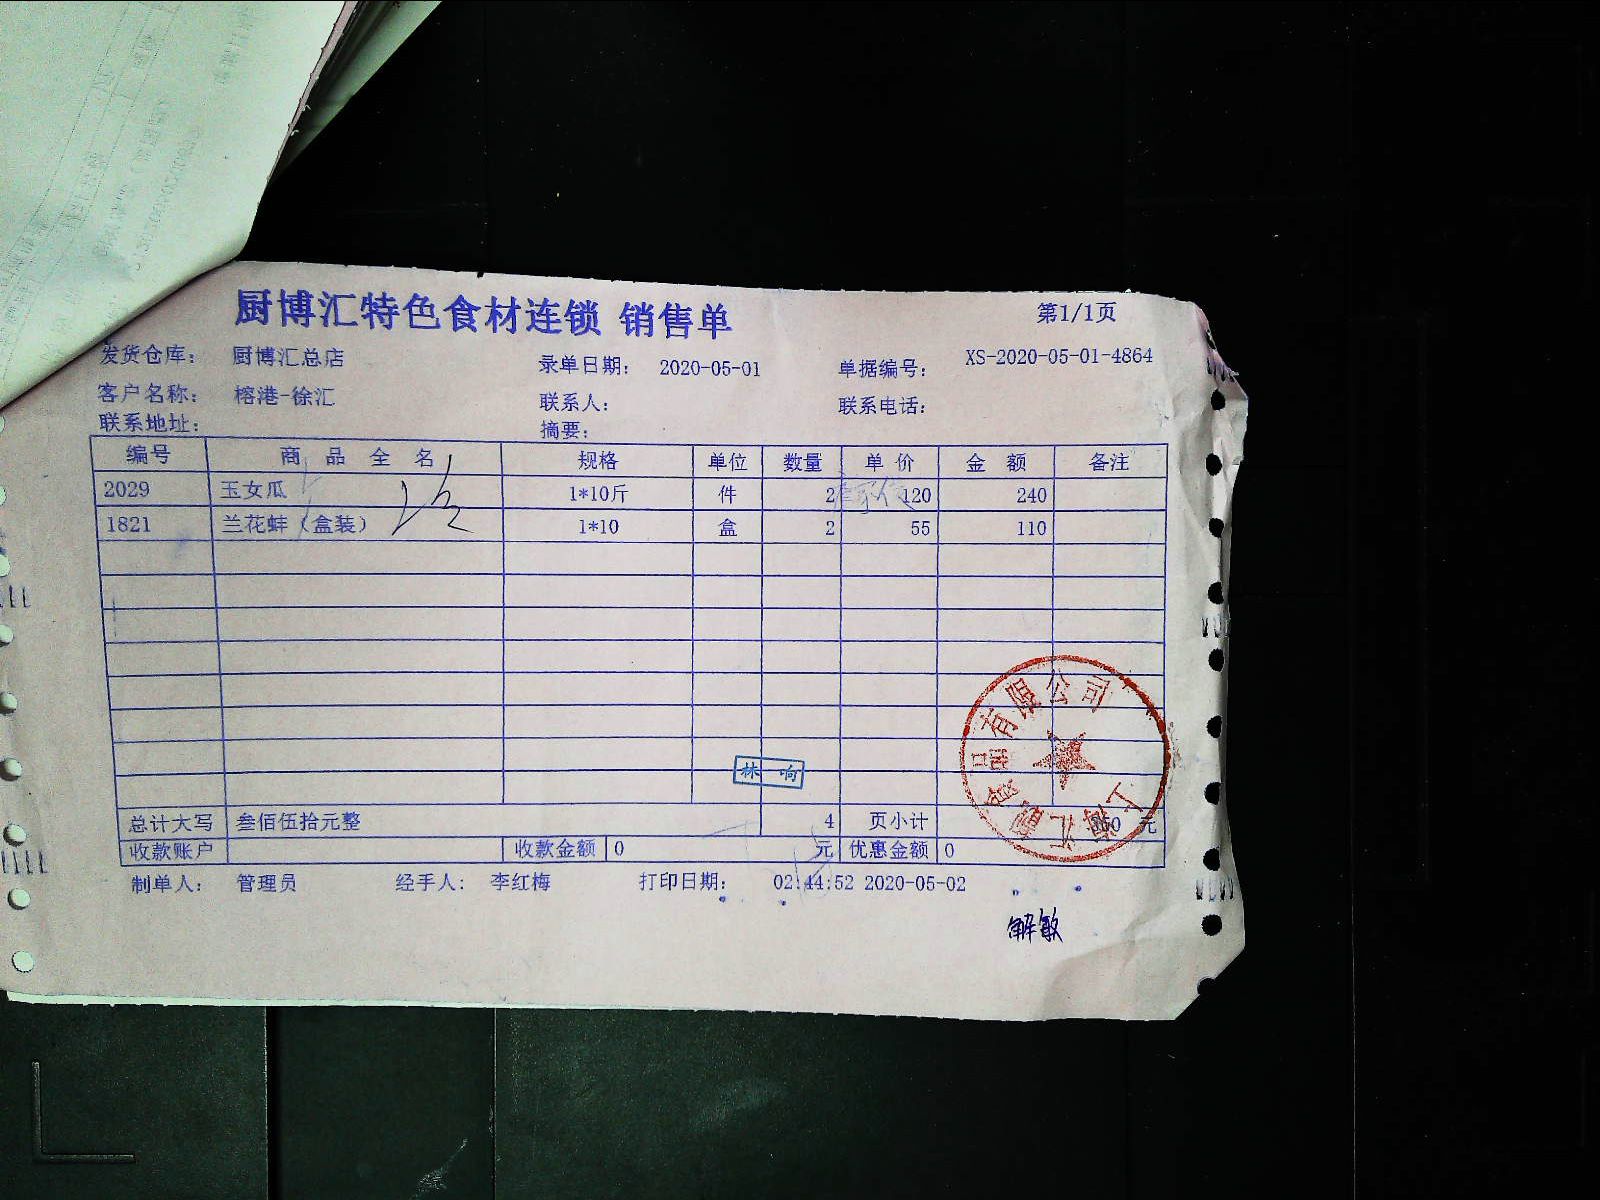 厨博汇特色食材连锁 销售单 第1/1页
发货仓库： 厨博汇总店 录单日期： 2020-05-01 单据编号： XS-2020-05-01-4864
客户名称： 榕港-徐汇 联系人： 联系电话：
联系地址： 摘要：
编号 商品全名 规格 单位 数量 单价 金额 备注
2029 玉女瓜 1*10斤 件 2 120 240
1821 兰花蚌（盒装） 1*10 盒 2 55 110
林响
有限公司
总计大写 叁佰伍拾元整 4 页小计 350 元
收款账户 收款金额 0 元 优惠金额 0
制单人： 管理员 经手人： 李红梅 打印日期： 02:44:52 2020-05-02
解敏